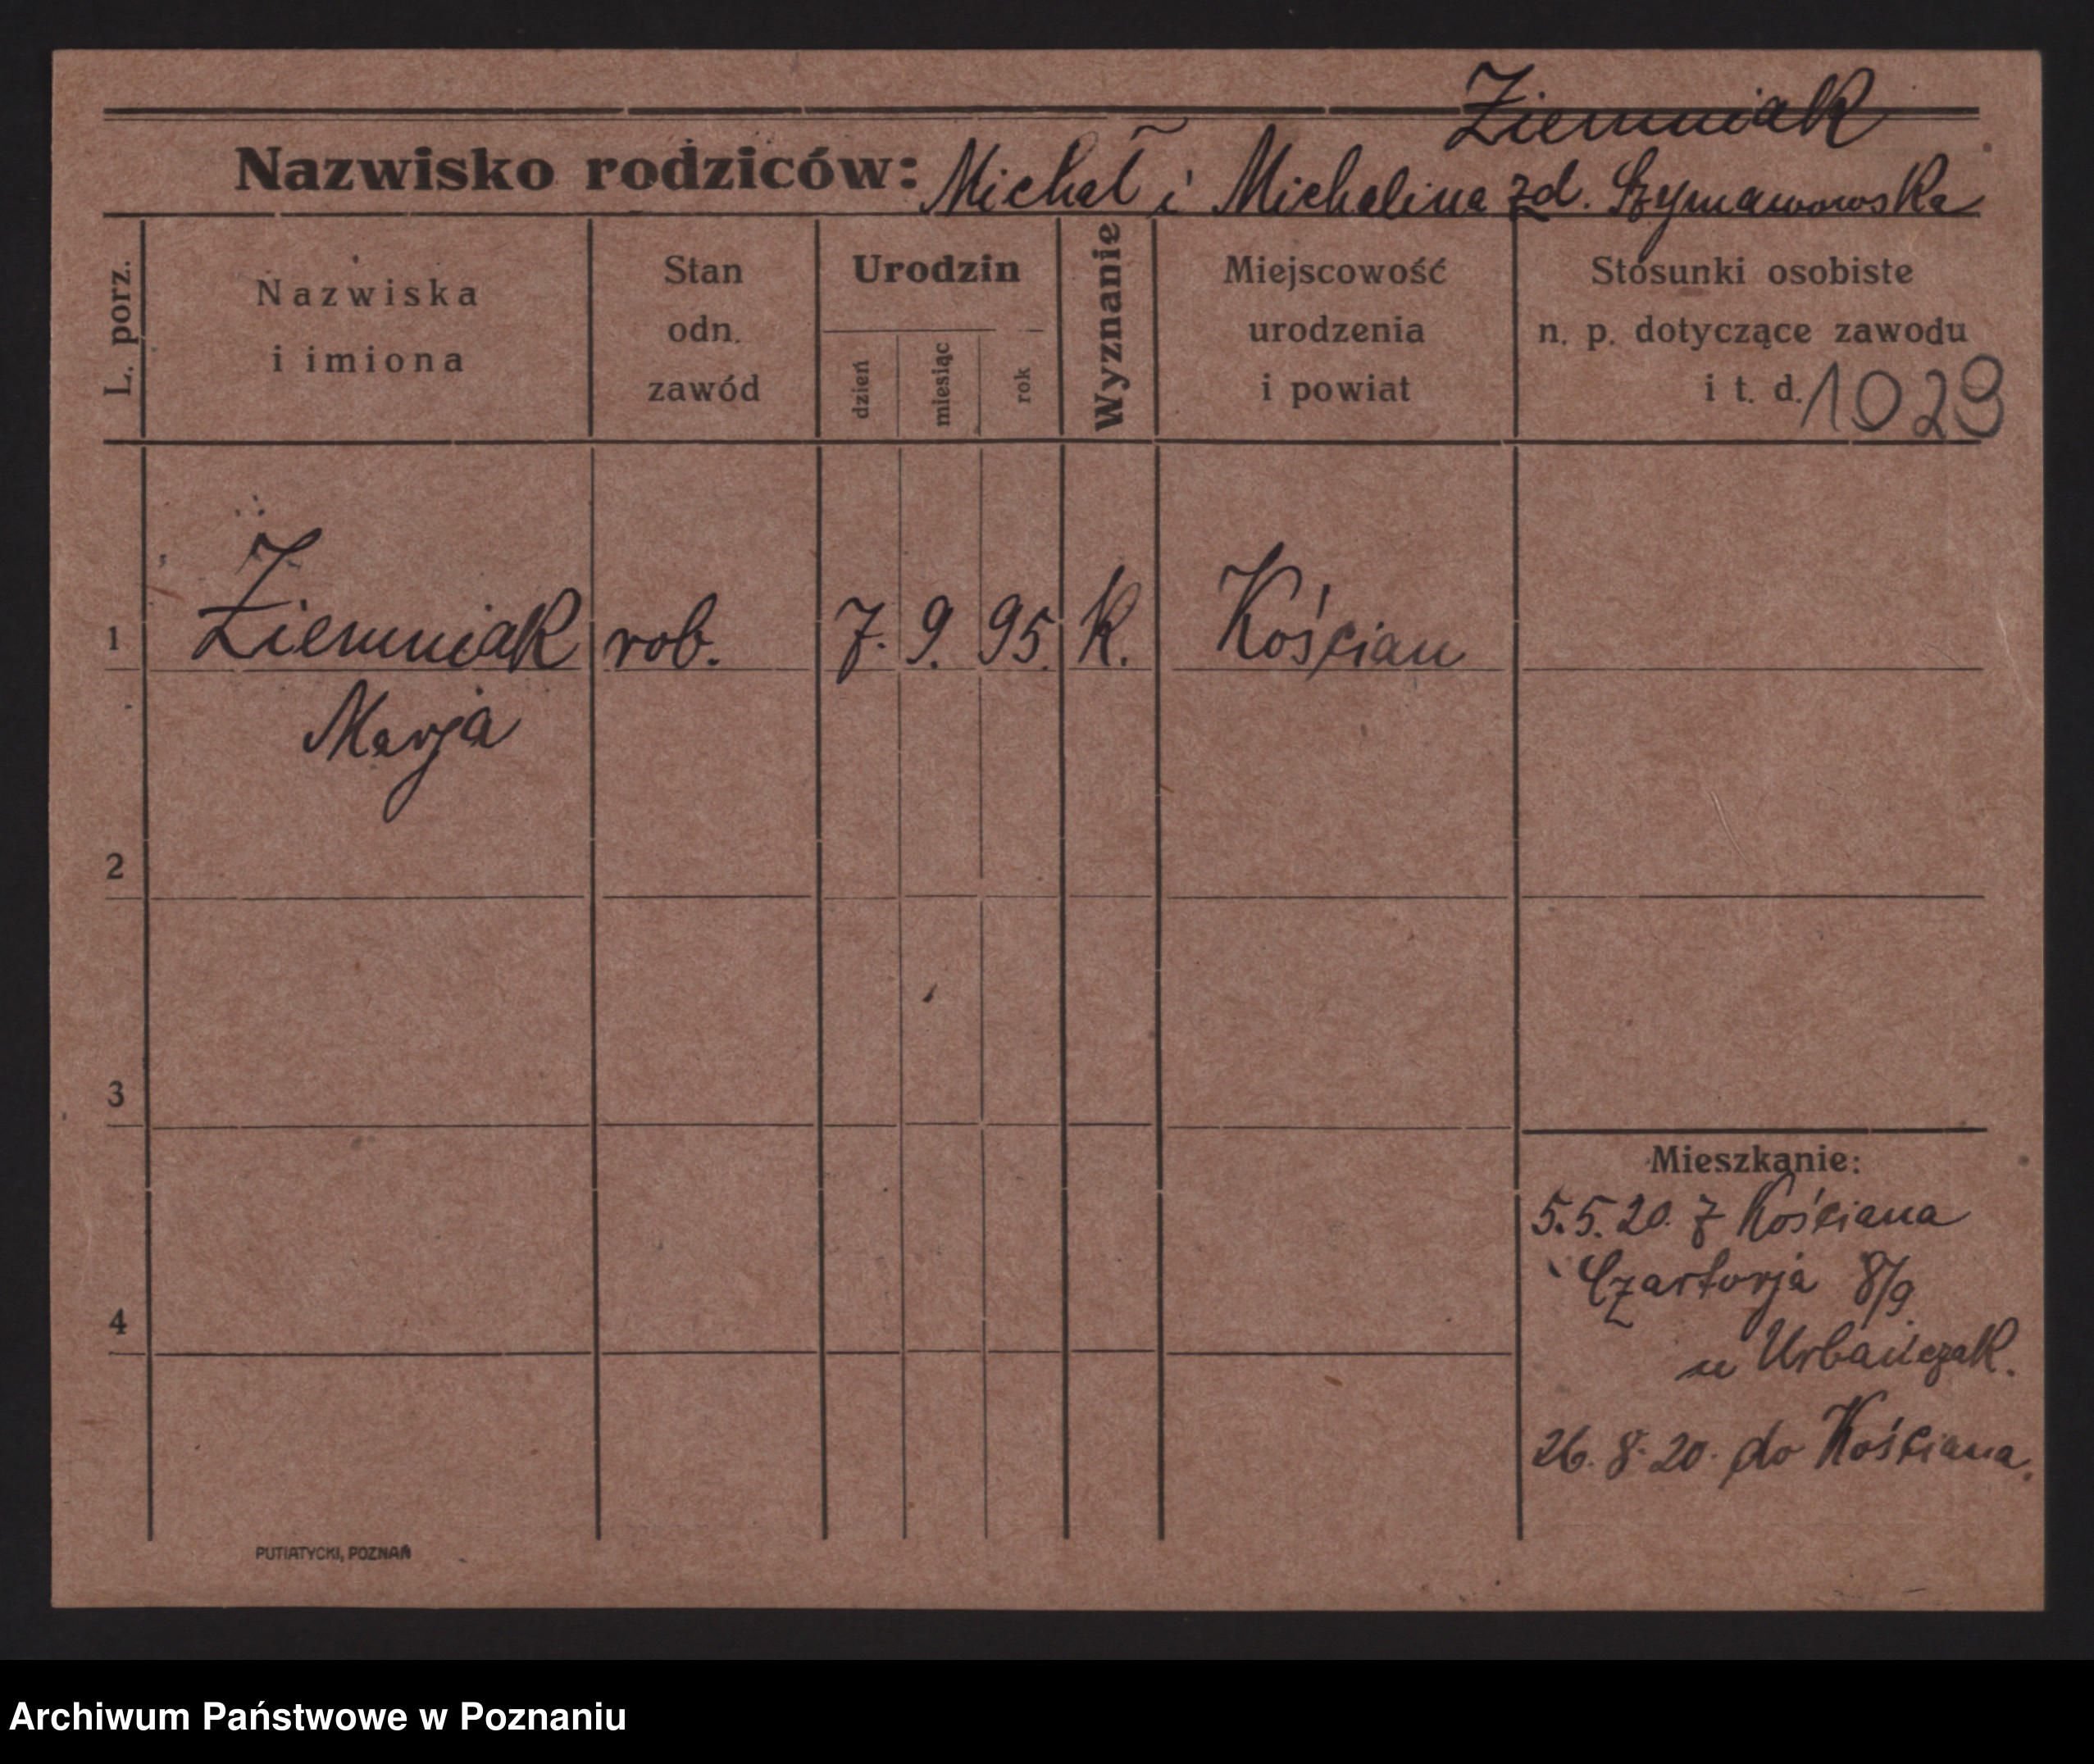 Ziemniak
Nazwisko rodziców: Michał i Michalina zd. Szymanowska
L. porz.
Nazwiska
i imiona
Stan
odn.
zawód
Urodzin
dzień
miesiąc
rok
Wyznanie
Miejscowość
urodzenia
i powiat
Stosunki osobiste
n. p. dotyczące zawodu
i t. d. 1029
1 Ziemniak rob. 7. 9. 95. K. Kościan
Marja
2
3
4
Mieszkanie:
5.5.20. z Kościana
Czartorja 8/9
u Urbańczak.
26.8.20. do Kościana.
PUTIATYCKI, POZNAŃ
Archiwum Państwowe w Poznaniu